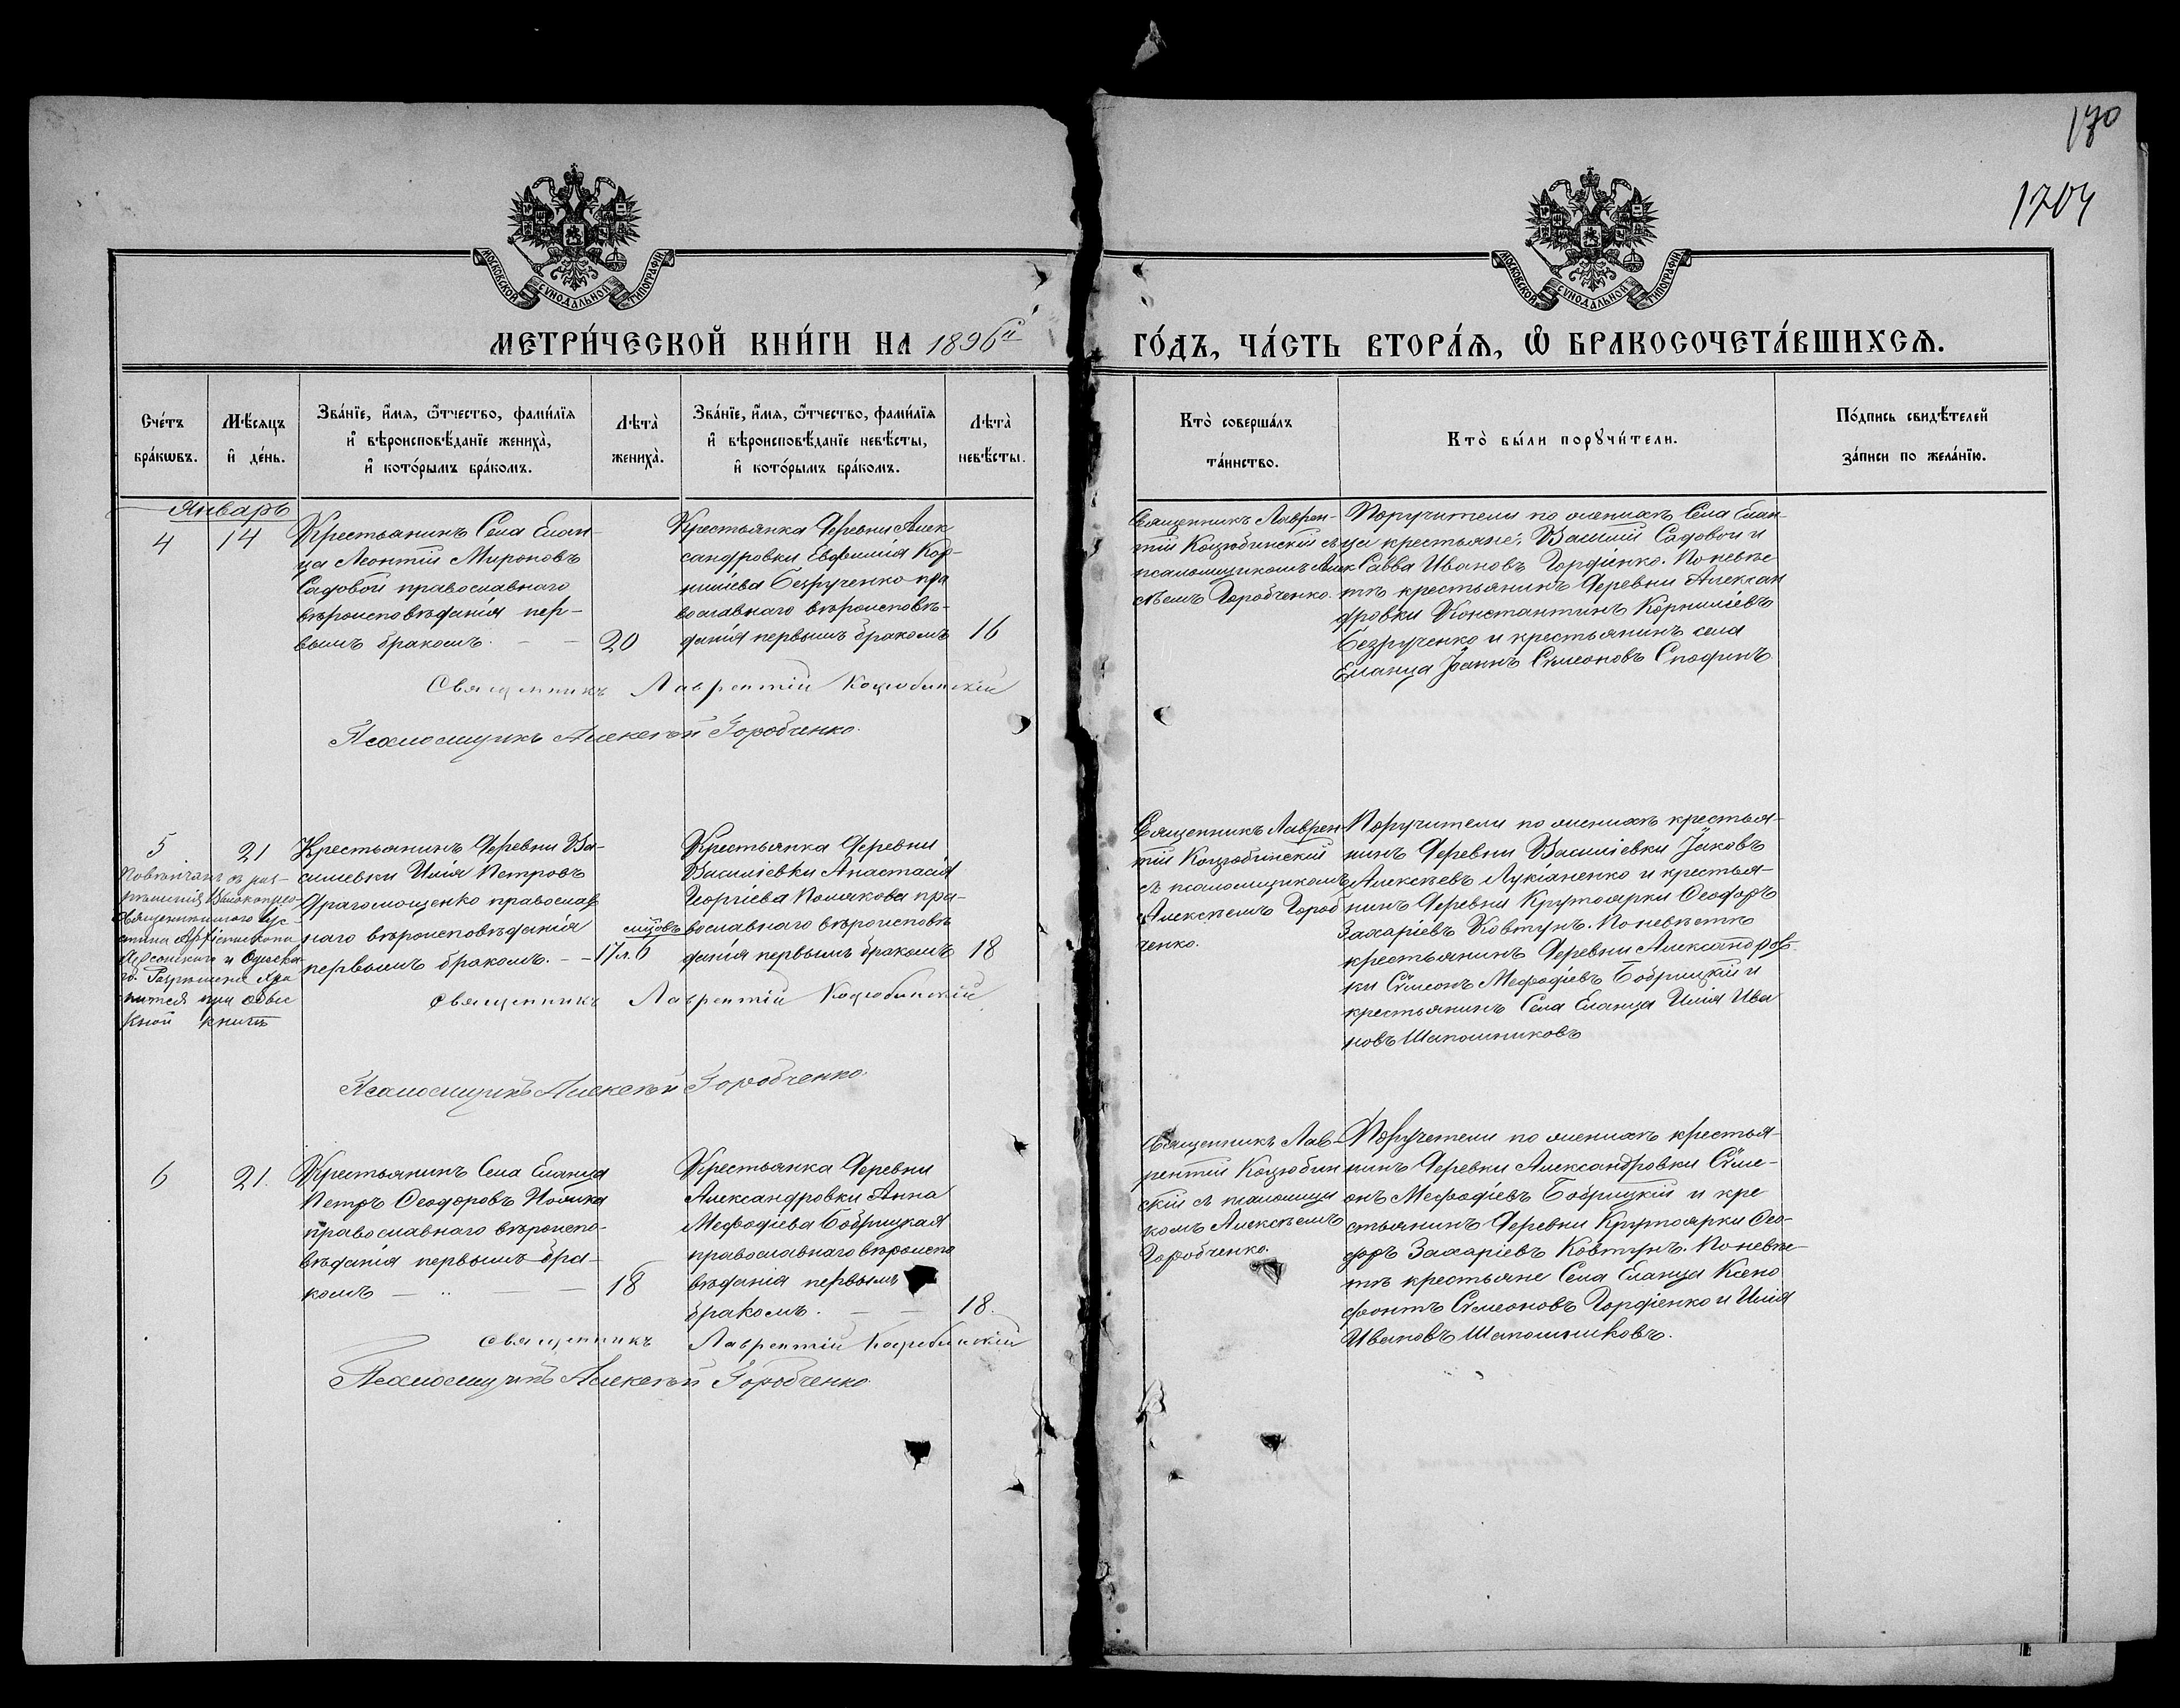 170
1704
МОСКОВСКОЙ СѴНОДАЛЬНОЙ ТИПОГРАФІИ
МОСКОВСКОЙ СѴНОДАЛЬНОЙ ТИПОГРАФІИ
МЕТРИ́ЧЕСКОЙ КНИ́ГИ НА 1896й ГО́ДЪ, ЧА́СТЬ ВТОРА́Ѧ, Ѽ БРАКОСОЧЕТА́ВШИХСѦ.
Сче́тъ
бра́кѡвъ.
Мѣ́сѧцъ
и҆ де́нь.
Зва́нїе, и҆́мѧ, ѻ҆́тчество, фами́лїѧ
и҆ вѣроисповѣ́данїе жениха̀,
и҆ кото́рымъ бра́комъ.
Лѣта̀
жениха̀.
Зва́нїе, и҆́мѧ, ѻ҆́тчество, фами́лїѧ
и҆ вѣроисповѣ́данїе невѣ́сты,
и҆ кото́рымъ бра́комъ.
Лѣта̀
невѣ́сты.
Кто̀ соверша́лъ
та́инство.
Кто̀ бы́ли порꙋчи́тели.
По́дпись свидѣ́телей
за́писи по жела́нїю.
Январь
4
14
Крестьянинъ Села Елан-
ца Леонтій Мироновъ
Садовой православнаго
вѣроисповѣданія пер-
вымъ бракомъ. — —
20
Крестьянка Деревни Алек
сандровки Евфимія Кор-
ниліева Безрученко пра
вославнаго вѣроисповѣ-
данія первымъ бракомъ
16
Священникъ Лаврен-
тій Коцюбинскій съ
псаломщикомъ Алек
сѣемъ Горобченко.
Поручители по женихѣ Села Елан-
ца крестьяне: Василій Садовой и
Савва Ивановъ Гордіенко. По невѣс
тѣ крестьянинъ Деревни Алексан
дровки Константинъ Корниліевъ
Безрученко и крестьянинъ села
Еланца Іоаннъ Сѵмеоновъ
Священникъ Лаврентій Коцюбинскій
Псаломщикъ Алексѣй Горобченко.
5
21
Повѣнчанъ съ раз-
рѣшенія Высокопрео-
священнѣйшаго Іус-
тина Архіепископа
Херсонскаго и Одесска-
го. Разрѣшеніе хра
нится при обыс
кной книгѣ
Крестьянинъ Деревни Ва-
силиевки Илія Петровъ
Драгомощенко православ
наго вѣроисповѣданія
первымъ бракомъ. —
мѣсяцовъ
17 л. 6
Крестьянка Деревни
Василіевки Анастасія
Георгіева Полякова пра-
вославнаго вѣроисповѣ
данія первымъ бракомъ
18
Священникъ Лаврен-
тій Коцюбинскій
съ псаломщикомъ
Алексѣемъ Гороб
ченко.
Поручители по женихѣ крестья-
нинъ Деревни Василіевки Іаковъ
Алексѣевъ Лукіаненко и крестья-
нинъ Деревни Крутоярки Ѳеодоръ
Захаріевъ Ковтунъ. По невѣстѣ
крестьянинъ Деревни Александров-
ки Сѵмеонъ Меѳодіевъ Бобрицкій и
крестьянинъ Села Еланца Илія Ива
новъ Шапошниковъ
Священникъ Лаврентій Коцюбинскій
Псаломщикъ Алексѣй Горобченко.
6
21.
Крестьянинъ Села Еланца
Петръ Ѳеодоровъ
православнаго вѣроиспо-
вѣданія первымъ бра-
комъ — — —
18
Крестьянка Деревни
Александровки Анна
Меѳодіева Бобрицкая
православнаго вѣроиспо
вѣданія первымъ
бракомъ. — —
18.
Священникъ Лав-
рентій Коцюбин
скій съ псаломщи
комъ Алексѣемъ
Горобченко.
Поручители по женихѣ крестья-
нинъ Деревни Александровки Сѵме-
онъ Меѳодіевъ Бобрицкій и кре
стьянинъ Деревни Крутоярки Ѳео-
доръ Захаріевъ Ковтунъ. По невѣс-
тѣ крестьяне Села Еланца Ксено
фонтъ Сѵмеоновъ Гордіенко и Илія
Ивановъ Шапошниковъ.
Священникъ Лаврентій Коцюбинскій
Псаломщикъ Алексѣй Горобченко